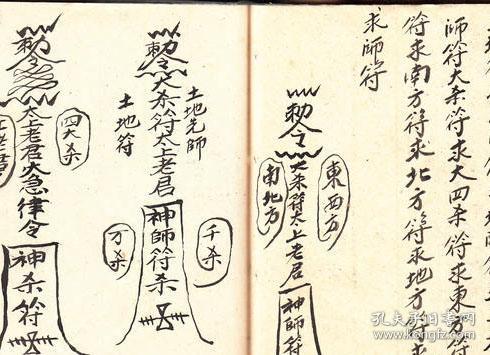 師符大杀符求大四杀符求東方符
符求南方符求北方符求地方符
求師符
東西方
勅令
大杀符太上老君
神師符
南北方
土地先師
千杀
勅令
大杀符太上老君
神師符杀
土地符
万杀
四大杀
勅令
太上老君急律令
神杀符
孔夫子旧书网